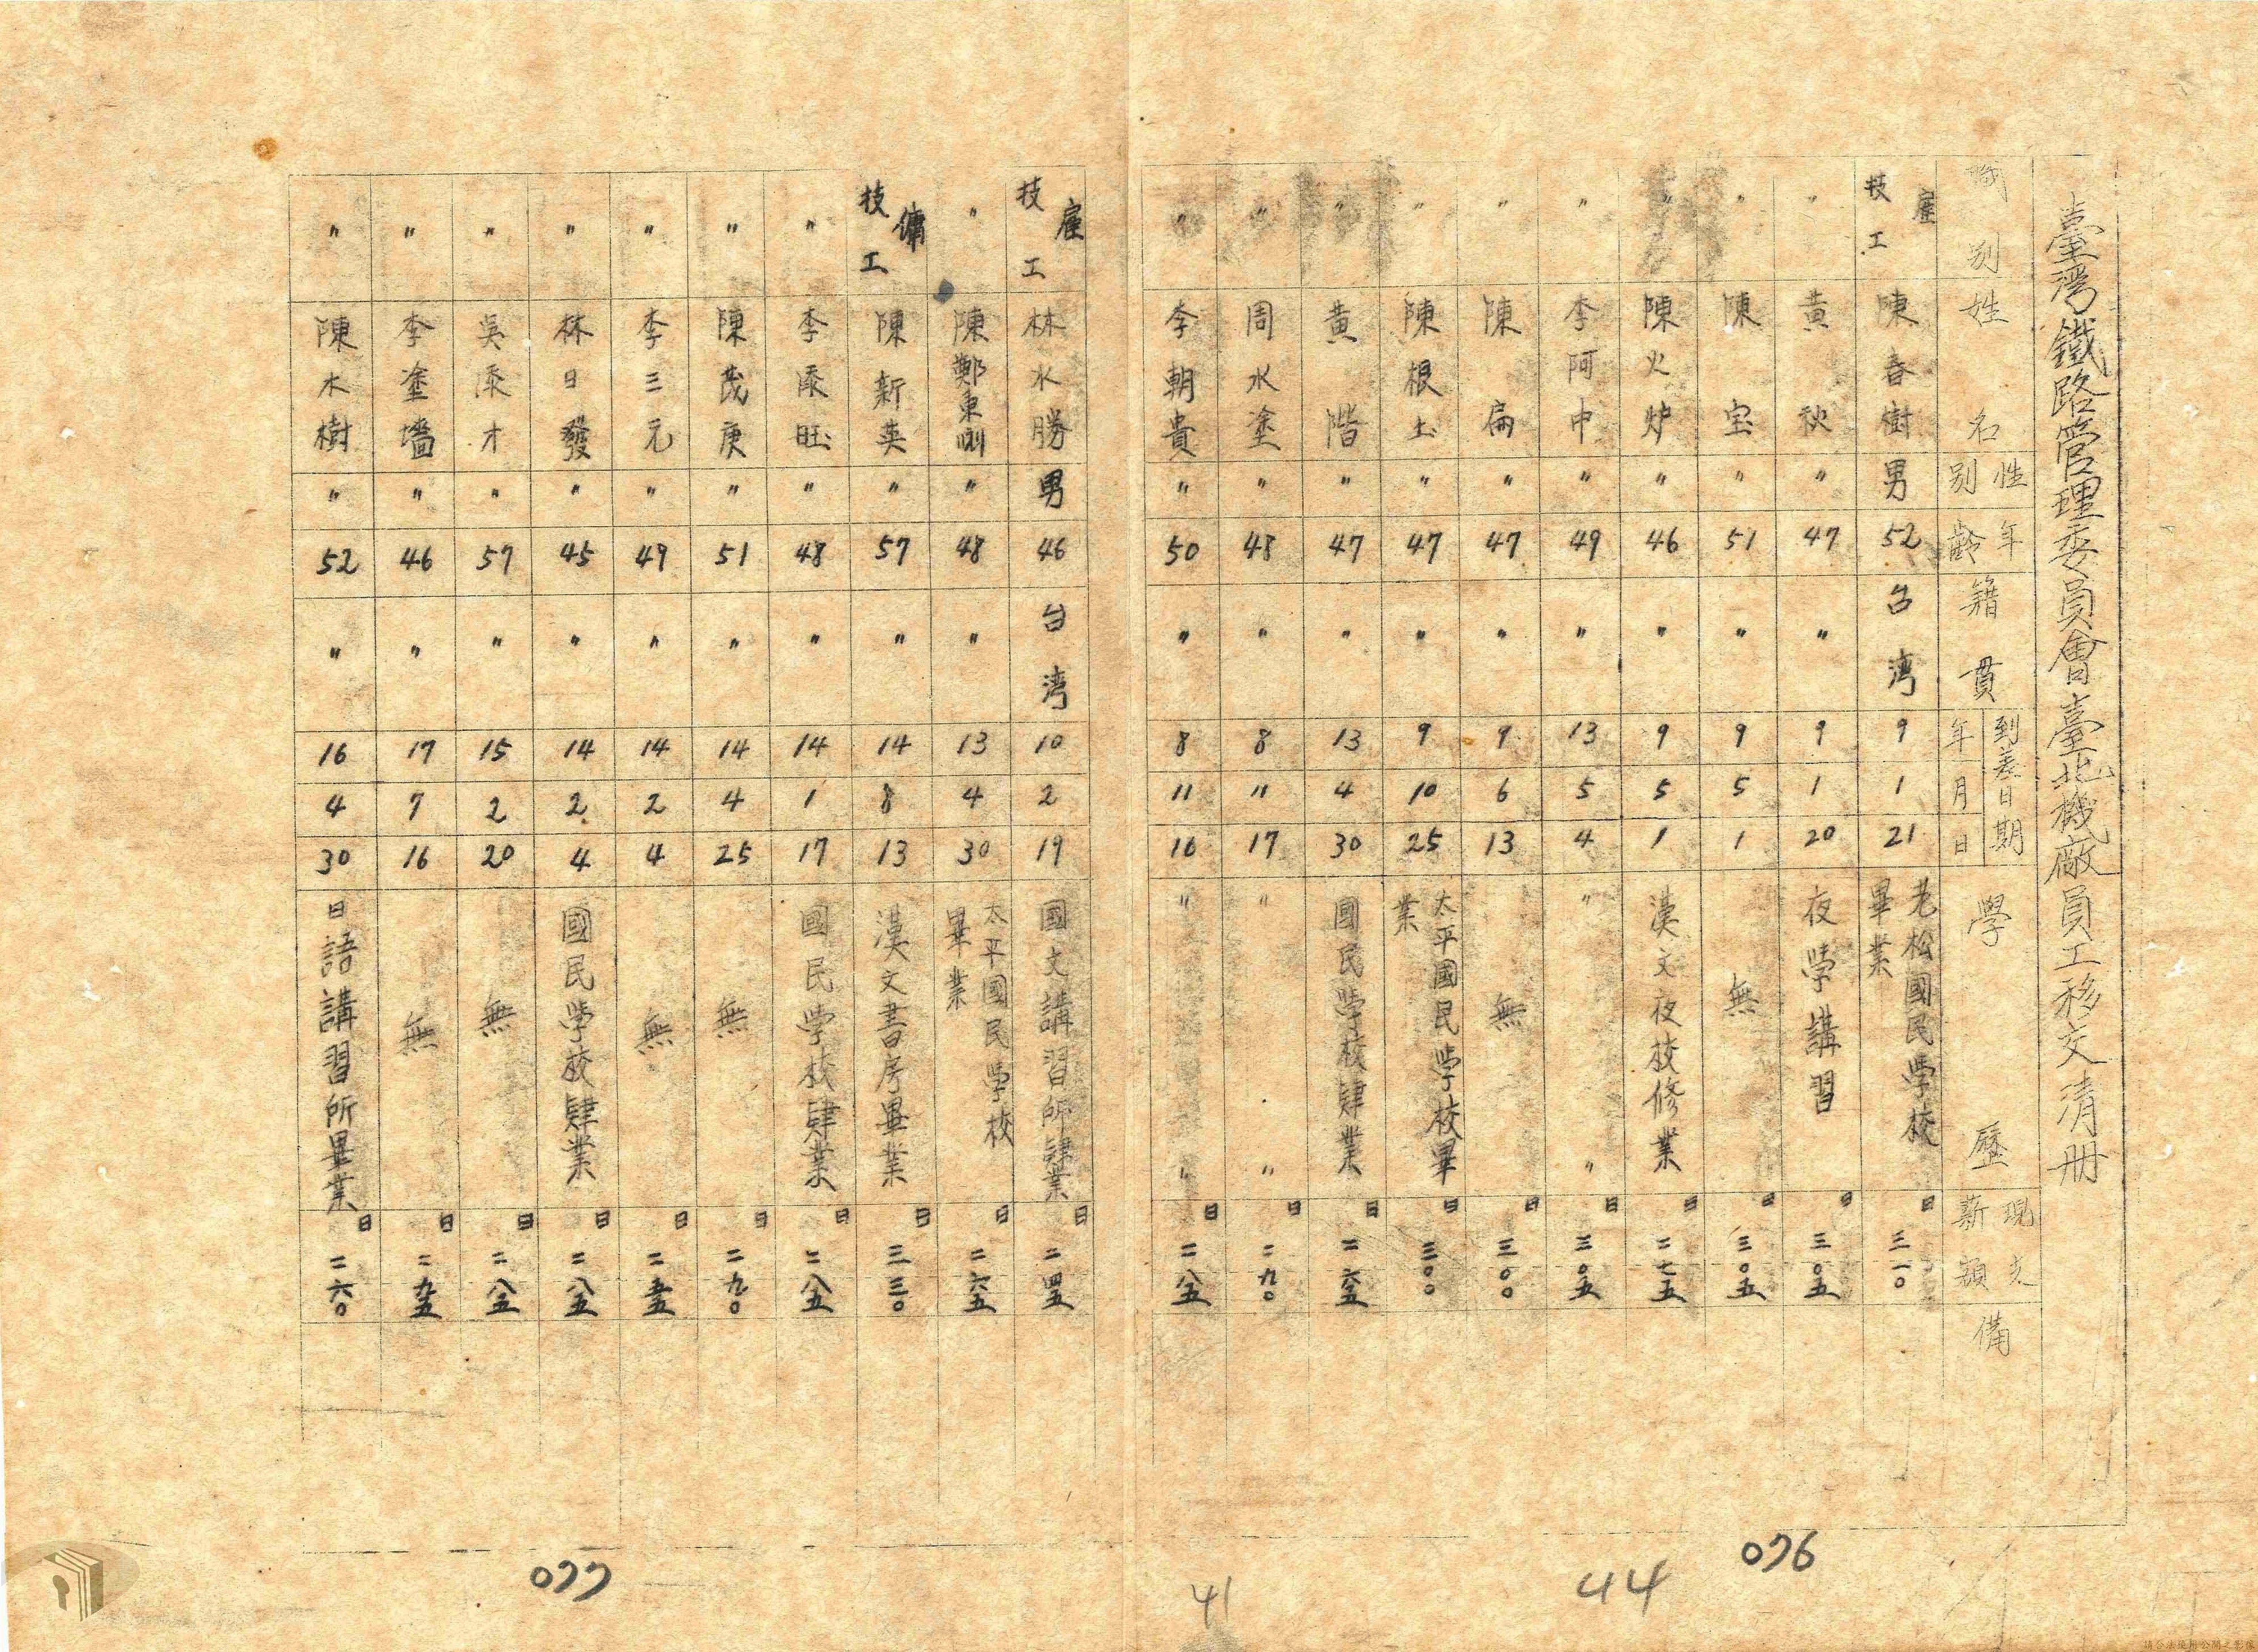 臺灣鐵路管理委員會臺北機廠員工移交清册
職別 姓名 性別 年齡 籍貫 到差日期 年 月 日 學歷 現支薪額 備
雇技工 陳春樹 男 52 台湾 9 1 21 老松國民学校畢業 日 三一〇
〃 黃秋 〃 47 〃 9 1 20 夜学講習 日 三〇五
〃 陳宝 〃 51 〃 9 5 1 無 日 三〇五
〃 陳火炉 〃 46 〃 9 5 1 漢文夜校修業 日 二七五
〃 李阿中 〃 49 〃 13 5 4 〃 〃 日 三〇五
〃 陳扁 〃 47 〃 9 6 13 無 日 三〇〇
〃 陳根土 〃 47 〃 9 10 25 太平國民学校畢業 日 三〇〇
〃 黃階 〃 47 〃 13 4 30 國民学校肄業 日 二六五
〃 周水塗 〃 48 〃 8 〃 17 〃 〃 日 二九〇
〃 李朝貴 〃 50 〃 8 11 16 〃 〃 日 二八五
雇技工 林水勝 男 46 台湾 10 2 19 國文講習所肄業 日 二四五
〃 陳鄭東 〃 48 〃 13 4 30 太平國民学校畢業 日 二六五
傭技工 陳新英 〃 57 〃 14 8 13 漢文書房畢業 日 三三〇
〃 李添旺 〃 48 〃 14 1 17 國民学校肄業 日 二八五
〃 陳茂庚 〃 51 〃 14 4 25 無 日 二九〇
〃 李三元 〃 49 〃 14 2 4 無 日 二五五
〃 林日發 〃 45 〃 14 2 4 國民学校肄業 日 二八五
〃 吳添才 〃 57 〃 15 2 20 無 日 二八五
〃 李塗墻 〃 46 〃 17 7 16 無 日 二九五
〃 陳木樹 〃 52 〃 16 4 30 日語講習所畢業 日 二六〇
076
44
41
077